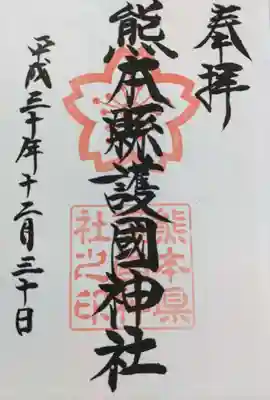 奉拝
熊本縣護國神社
平成三十年十二月三十日
熊本県
社之印